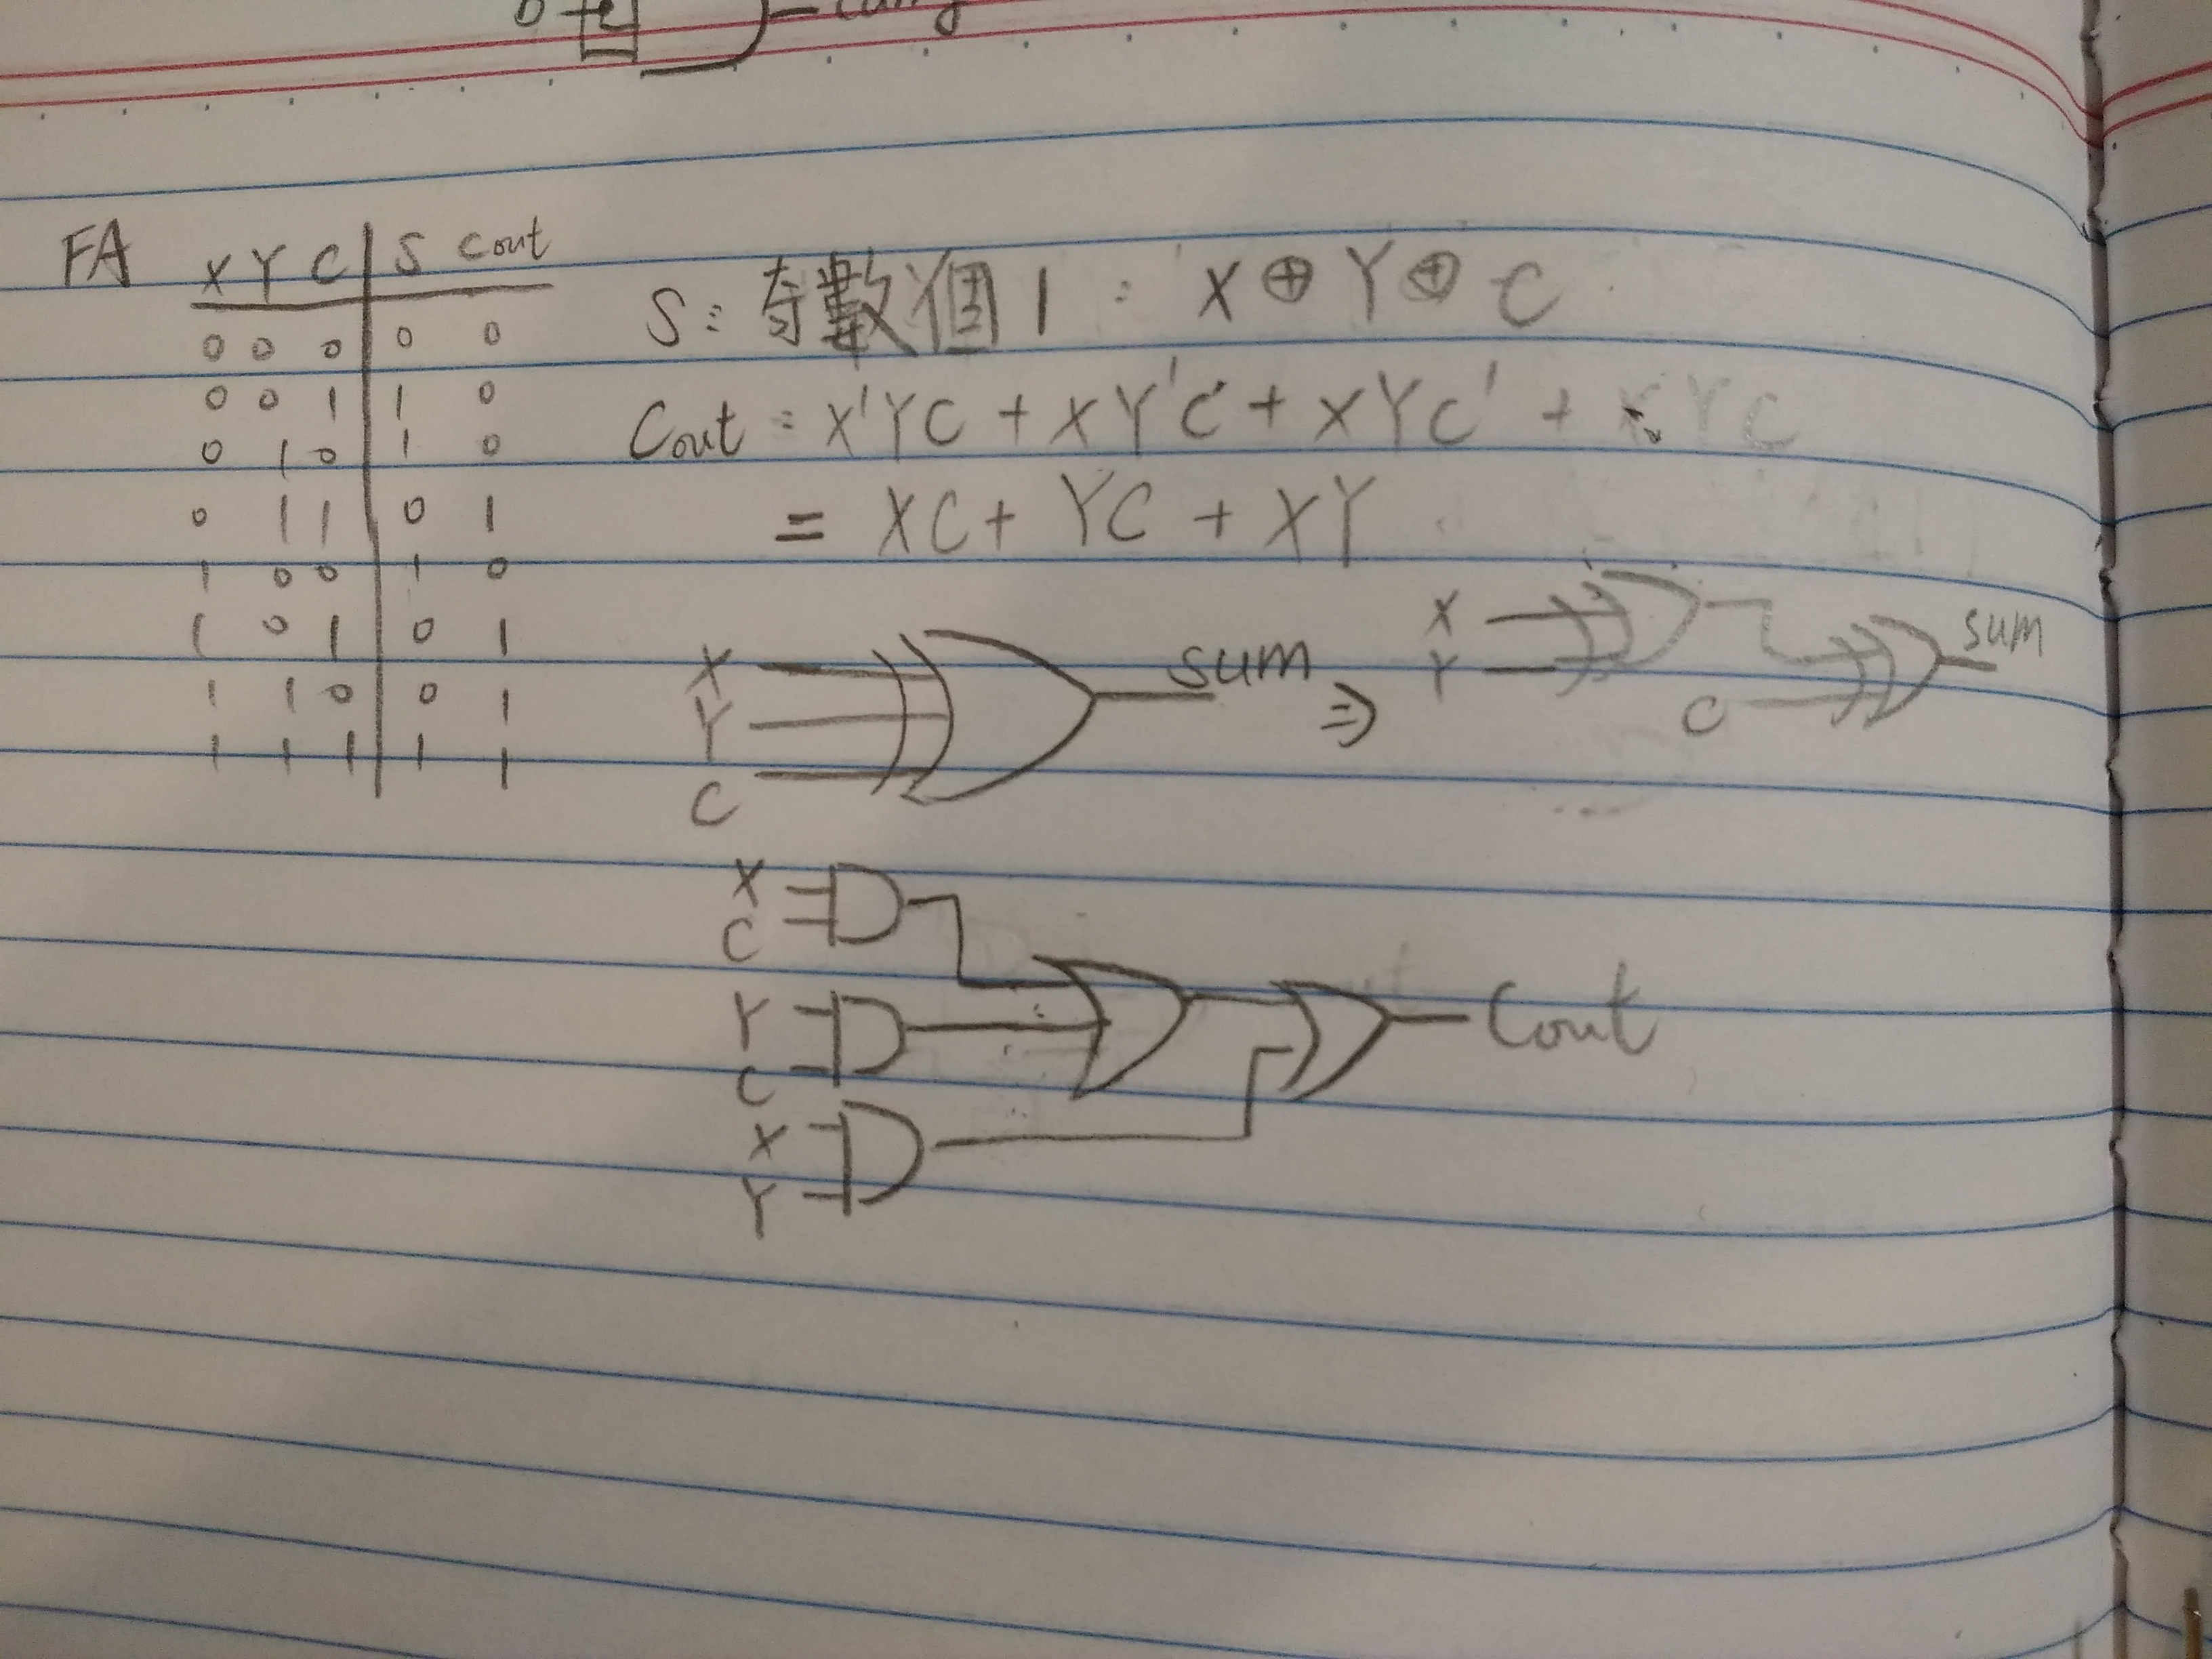 FA
X Y C | S Cout
0 0 0 | 0 0
0 0 1 | 1 0
0 1 0 | 1 0
0 1 1 | 0 1
1 0 0 | 1 0
1 0 1 | 0 1
1 1 0 | 0 1
1 1 1 | 1 1
S: 奇數個 1 : X ⊕ Y ⊕ C
Cout = X'YC + XY'C + XYC' + XYC
= XC + YC + XY
X
Y
C
sum
⇒
X
Y
C
sum
X
C
Y
C
X
Y
Cout